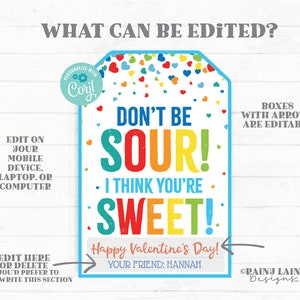 WHAT CAN BE EDITED?
PERSONALIZE WITH
Corjl
DON'T BE
SOUR!
I THINK YOU'RE
SWEET!
Happy Valentine's Day!
YOUR FRIEND: HANNAH
EDIT ON
YOUR
MOBILE
DEVICE,
LAPTOP, OR
COMPUTER
BOXES
WITH ARROW
ARE EDITAB
EDIT HERE
OR DELETE
OU'D PREFER TO
WRITE THIS SECTION
©RAINJ LAINE
Designs